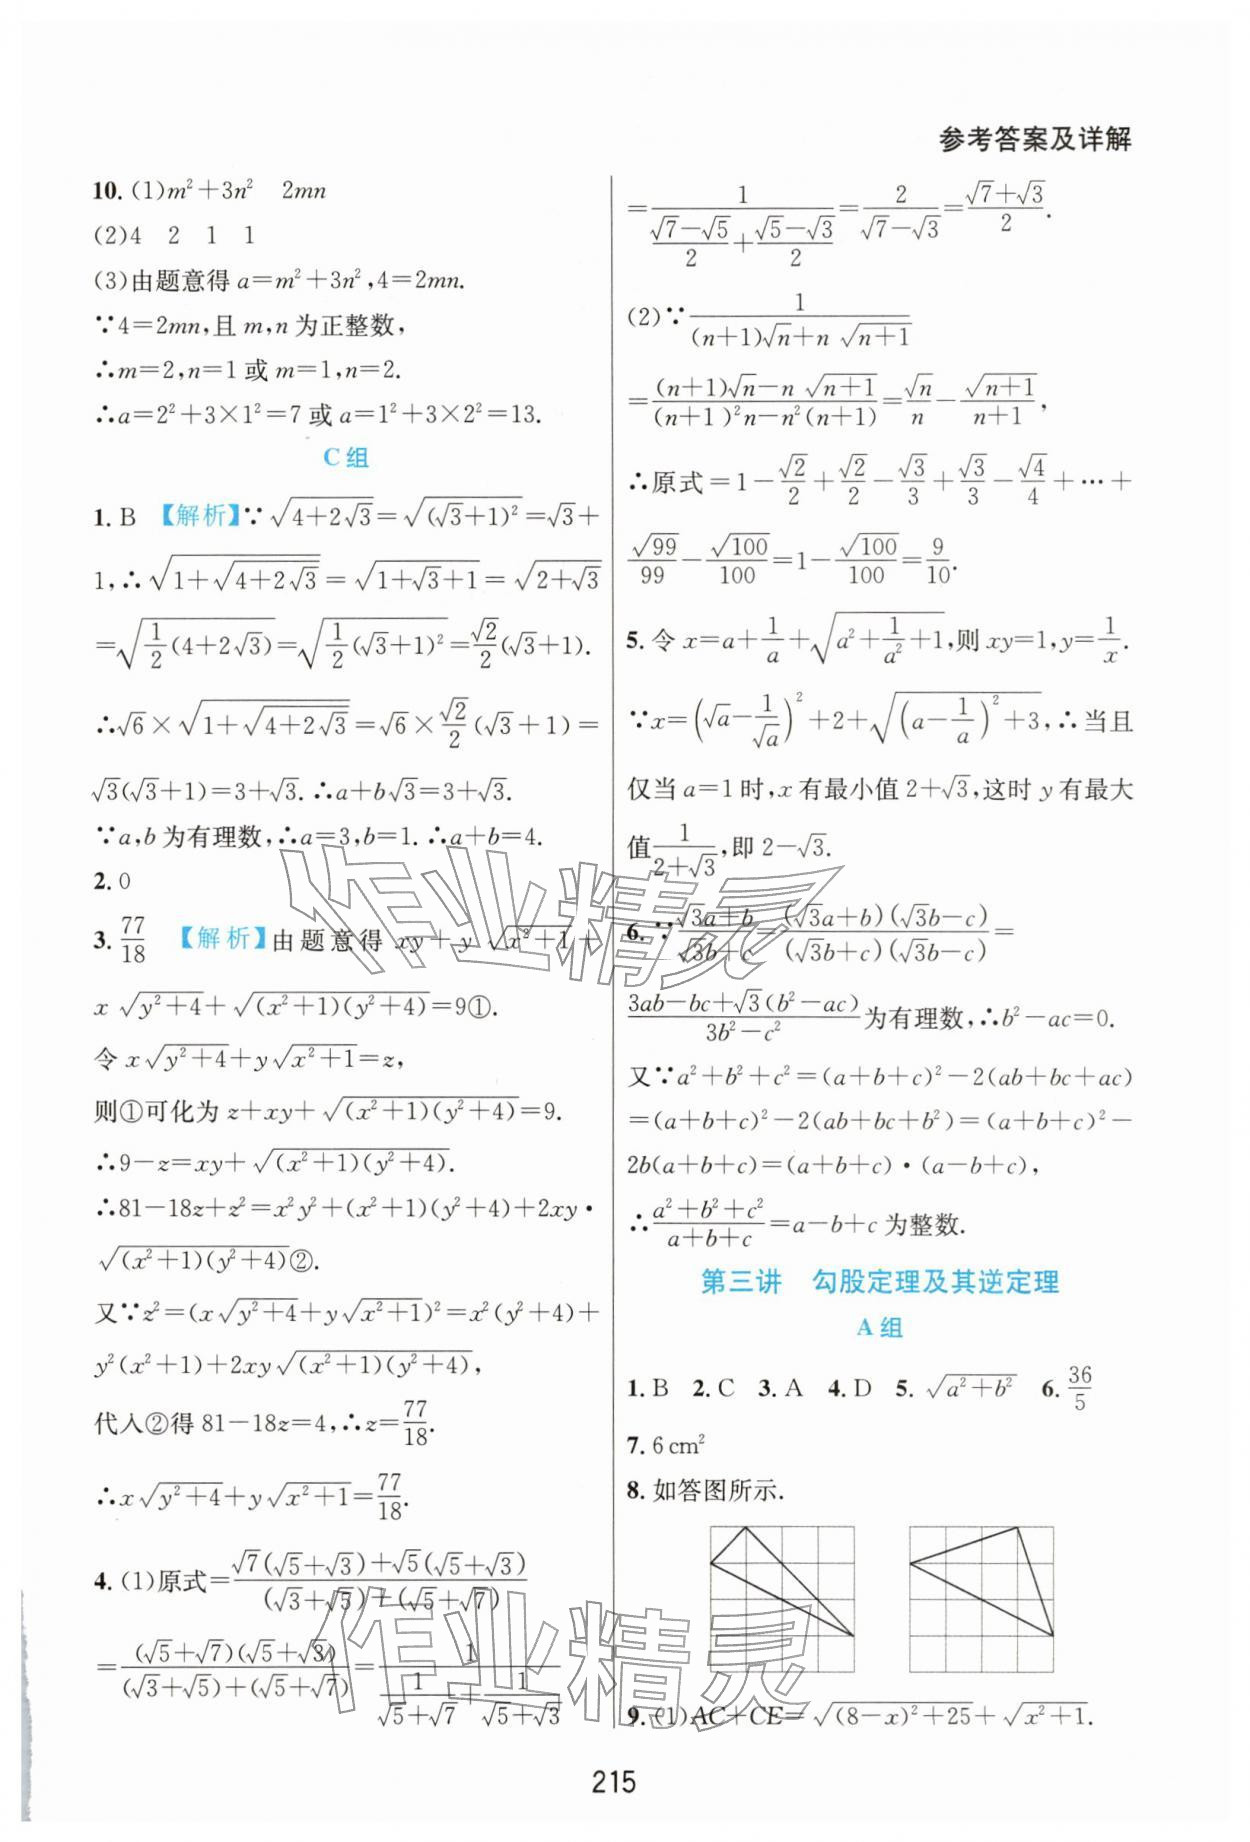 参考答案及详解
10. (1)m²+3n²　2mn
(2)4　2　1　1
(3)由题意得 a=m²+3n²,4=2mn.
∵4=2mn,且 m,n 为正整数,
∴m=2,n=1 或 m=1,n=2.
∴a=2²+3×1²=7 或 a=1²+3×2²=13.
C组
1. B 【解析】∵√(4+2√3)=√((√3+1)²)=√3+
1,∴√(1+√(4+2√3))=√(1+√3+1)=√(2+√3)
=√(1/2(4+2√3))=√(1/2(√3+1)²)=√2/2(√3+1).
∴√6×√(1+√(4+2√3))=√6×√2/2(√3+1)=
√3(√3+1)=3+√3.∴a+b√3=3+√3.
∵a,b 为有理数,∴a=3,b=1.∴a+b=4.
2. 0
3. 77/18 【解析】由题意得 xy+y√(x²+1)+
x√(y²+4)+√((x²+1)(y²+4))=9①.
令 x√(y²+4)+y√(x²+1)=z,
则①可化为 z+xy+√((x²+1)(y²+4))=9.
∴9-z=xy+√((x²+1)(y²+4)).
∴81-18z+z²=x²y²+(x²+1)(y²+4)+2xy·
√((x²+1)(y²+4))②.
又∵z²=(x√(y²+4)+y√(x²+1))²=x²(y²+4)+
y²(x²+1)+2xy√((x²+1)(y²+4)),
代入②得 81-18z=4,∴z=77/18.
∴x√(y²+4)+y√(x²+1)=77/18.
4. (1)原式=(√7(√5+√3)+√5(√5+√3))/((√3+√5)+(√5+√7))
=((√5+√7)(√5+√3))/((√3+√5)+(√5+√7))=1/(1/(√5+√7)+1/(√5+√3))
=1/((√7-√5)/2+(√5-√3)/2)=2/(√7-√3)=(√7+√3)/2.
(2)∵1/((n+1)√n+n√(n+1))
=((n+1)√n-n√(n+1))/((n+1)²n-n²(n+1))=√n/n-√(n+1)/(n+1),
∴原式=1-√2/2+√2/2-√3/3+√3/3-√4/4+…+
√99/99-√100/100=1-√100/100=9/10.
5. 令 x=a+1/a+√(a²+1/a²+1),则 xy=1,y=1/x.
∵x=(√a-1/√a)²+2+√((a-1/a)²+3),∴当且
仅当 a=1 时,x 有最小值 2+√3,这时 y 有最大
值1/(2+√3),即 2-√3.
6. ∵(√3a+b)/(√3b+c)=((√3a+b)(√3b-c))/((√3b+c)(√3b-c))=
(3ab-bc+√3(b²-ac))/(3b²-c²)为有理数,∴b²-ac=0.
又∵a²+b²+c²=(a+b+c)²-2(ab+bc+ac)
=(a+b+c)²-2(ab+bc+b²)=(a+b+c)²-
2b(a+b+c)=(a+b+c)·(a-b+c),
∴(a²+b²+c²)/(a+b+c)=a-b+c 为整数.
第三讲　勾股定理及其逆定理
A组
1. B　2. C　3. A　4. D　5. √(a²+b²)　6. 36/5
7. 6 cm²
8. 如答图所示.
9. (1)AC+CE=√((8-x)²+25)+√(x²+1).
215
作业精灵
作业精灵